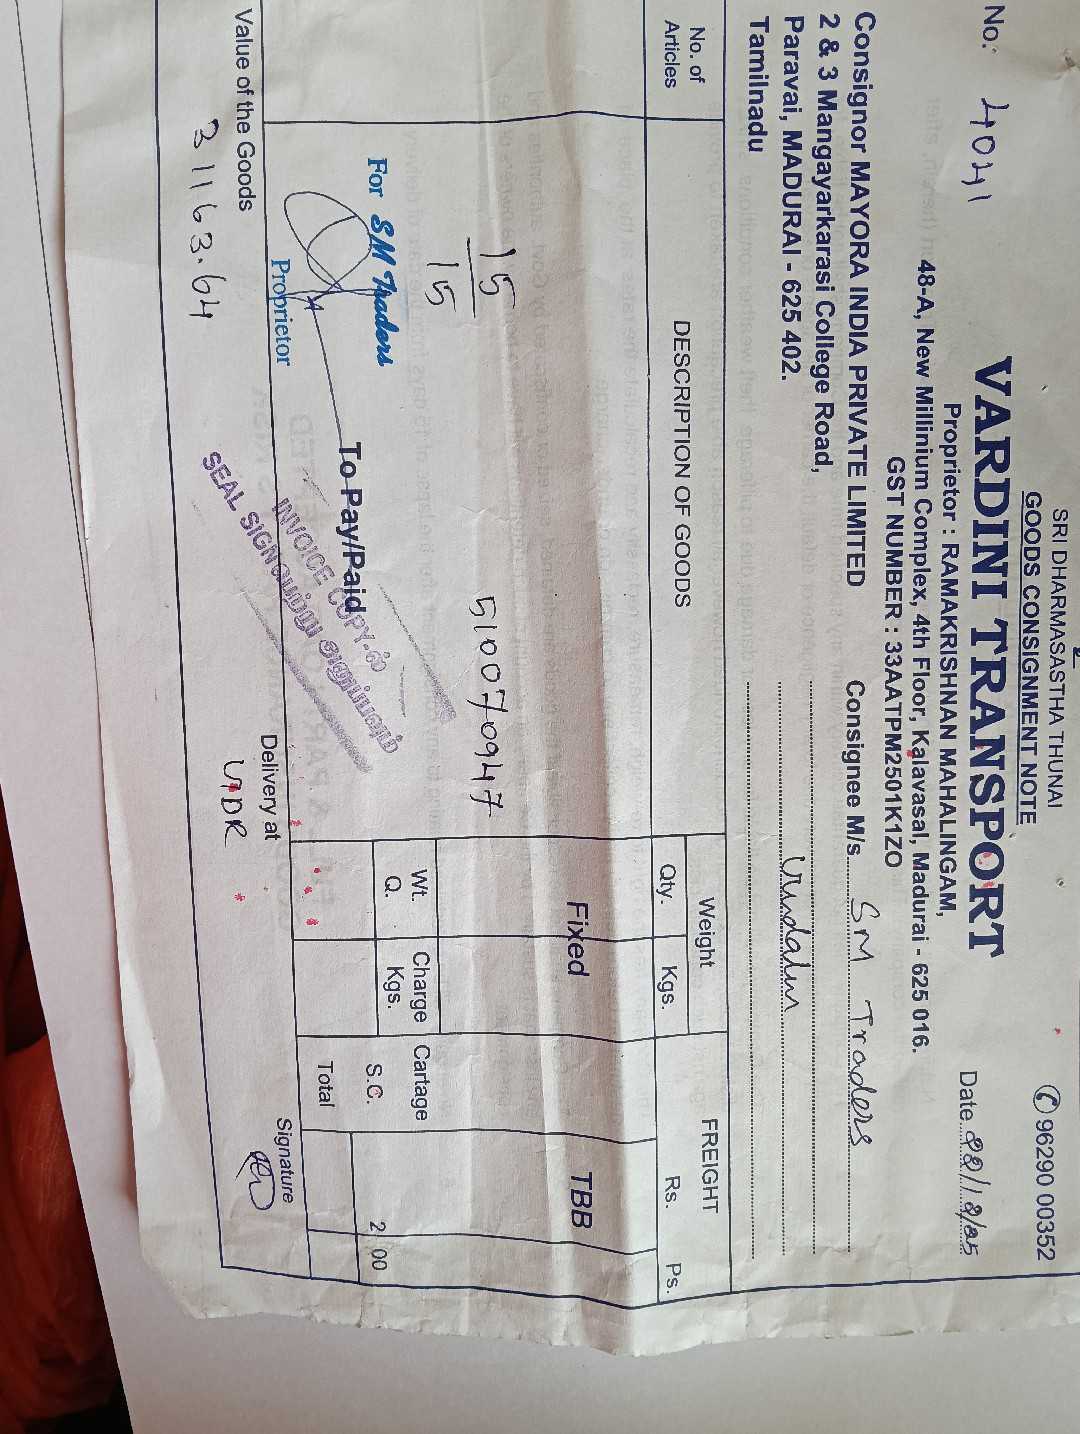 SRI DHARMASASTHA THUNAI
GOODS CONSIGNMENT NOTE
✆ 96290 00352
VARDINI TRANSPORT
Proprietor : RAMAKRISHNAN MAHALINGAM,
No. 4041
48-A, New Millinium Complex, 4th Floor, Kalavasal, Madurai - 625 016.
Date 22/12/25
GST NUMBER : 33AATPM2501K1ZO
Consignor MAYORA INDIA PRIVATE LIMITED
2 & 3 Mangayarkarasi College Road,
Paravai, MADURAI - 625 402.
Tamilnadu
Consignee M/s. SM Traders
No. of Articles
DESCRIPTION OF GOODS
Weight
FREIGHT
Qty. Kgs. Rs. Ps.
Fixed TBB
15
15
510070947
For SM Traders
Proprietor
To Pay/Paid
INVOICE COPY-ல்
SEAL SIGN வைத்து அனுப்பவும்
Wt. Q. Charge Kgs. Cartage
S.C. 2 00
Total
Value of the Goods
31163.64
Delivery at
VDR
Signature